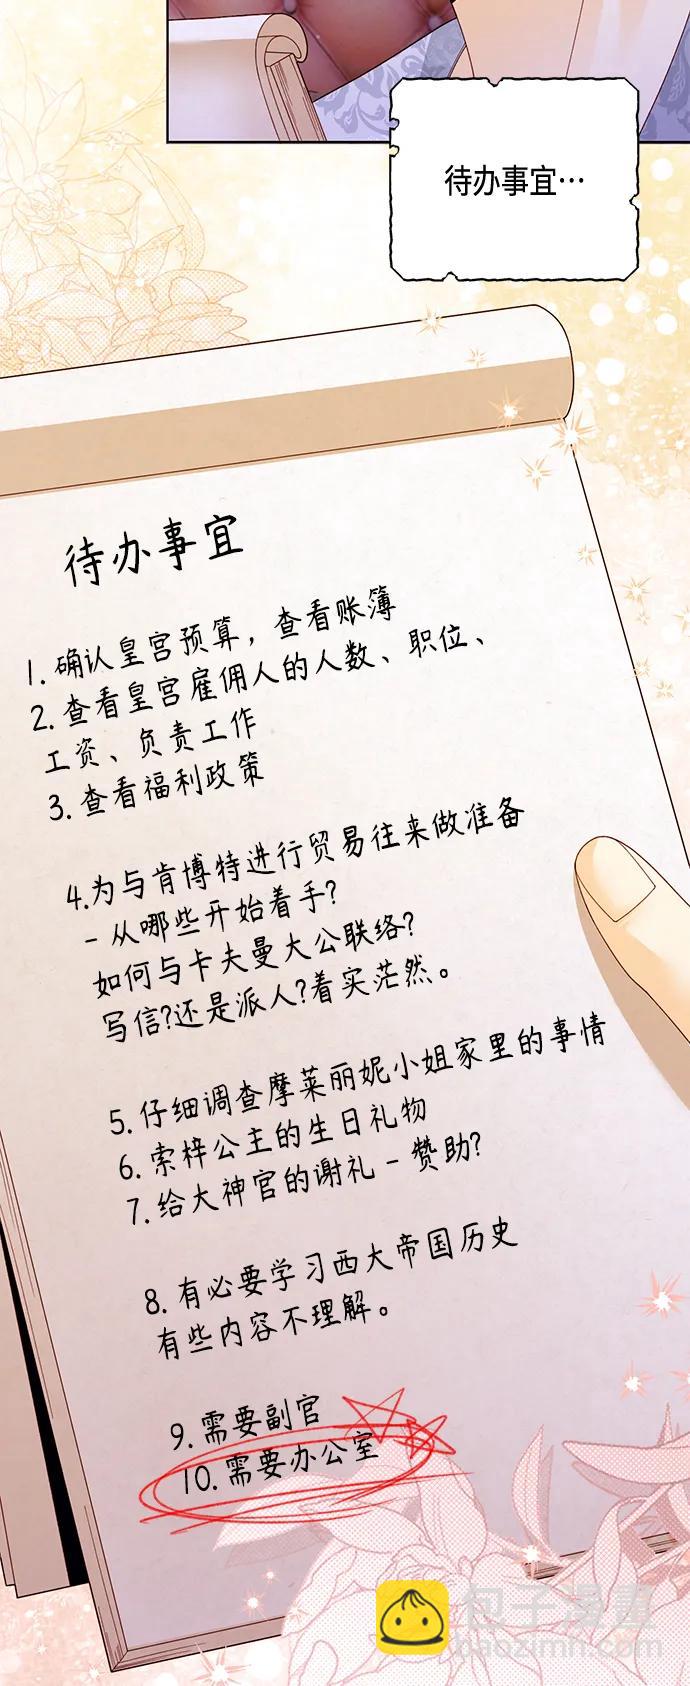 待办事宜…
待办事宜
1. 确认皇宫预算，查看账簿
2. 查看皇宫雇佣人的人数、职位、
工资、负责工作
3. 查看福利政策
4.为与肯博特进行贸易往来做准备
- 从哪些开始着手?
如何与卡夫曼大公联络?
写信?还是派人?着实茫然。
5. 仔细调查摩莱丽妮小姐家里的事情
6. 索梓公主的生日礼物
7. 给大神官的谢礼 - 赞助?
8. 有必要学习西大帝国历史
有些内容不理解。
9. 需要副官
10. 需要办公室
包子漫畫
baozimh.com